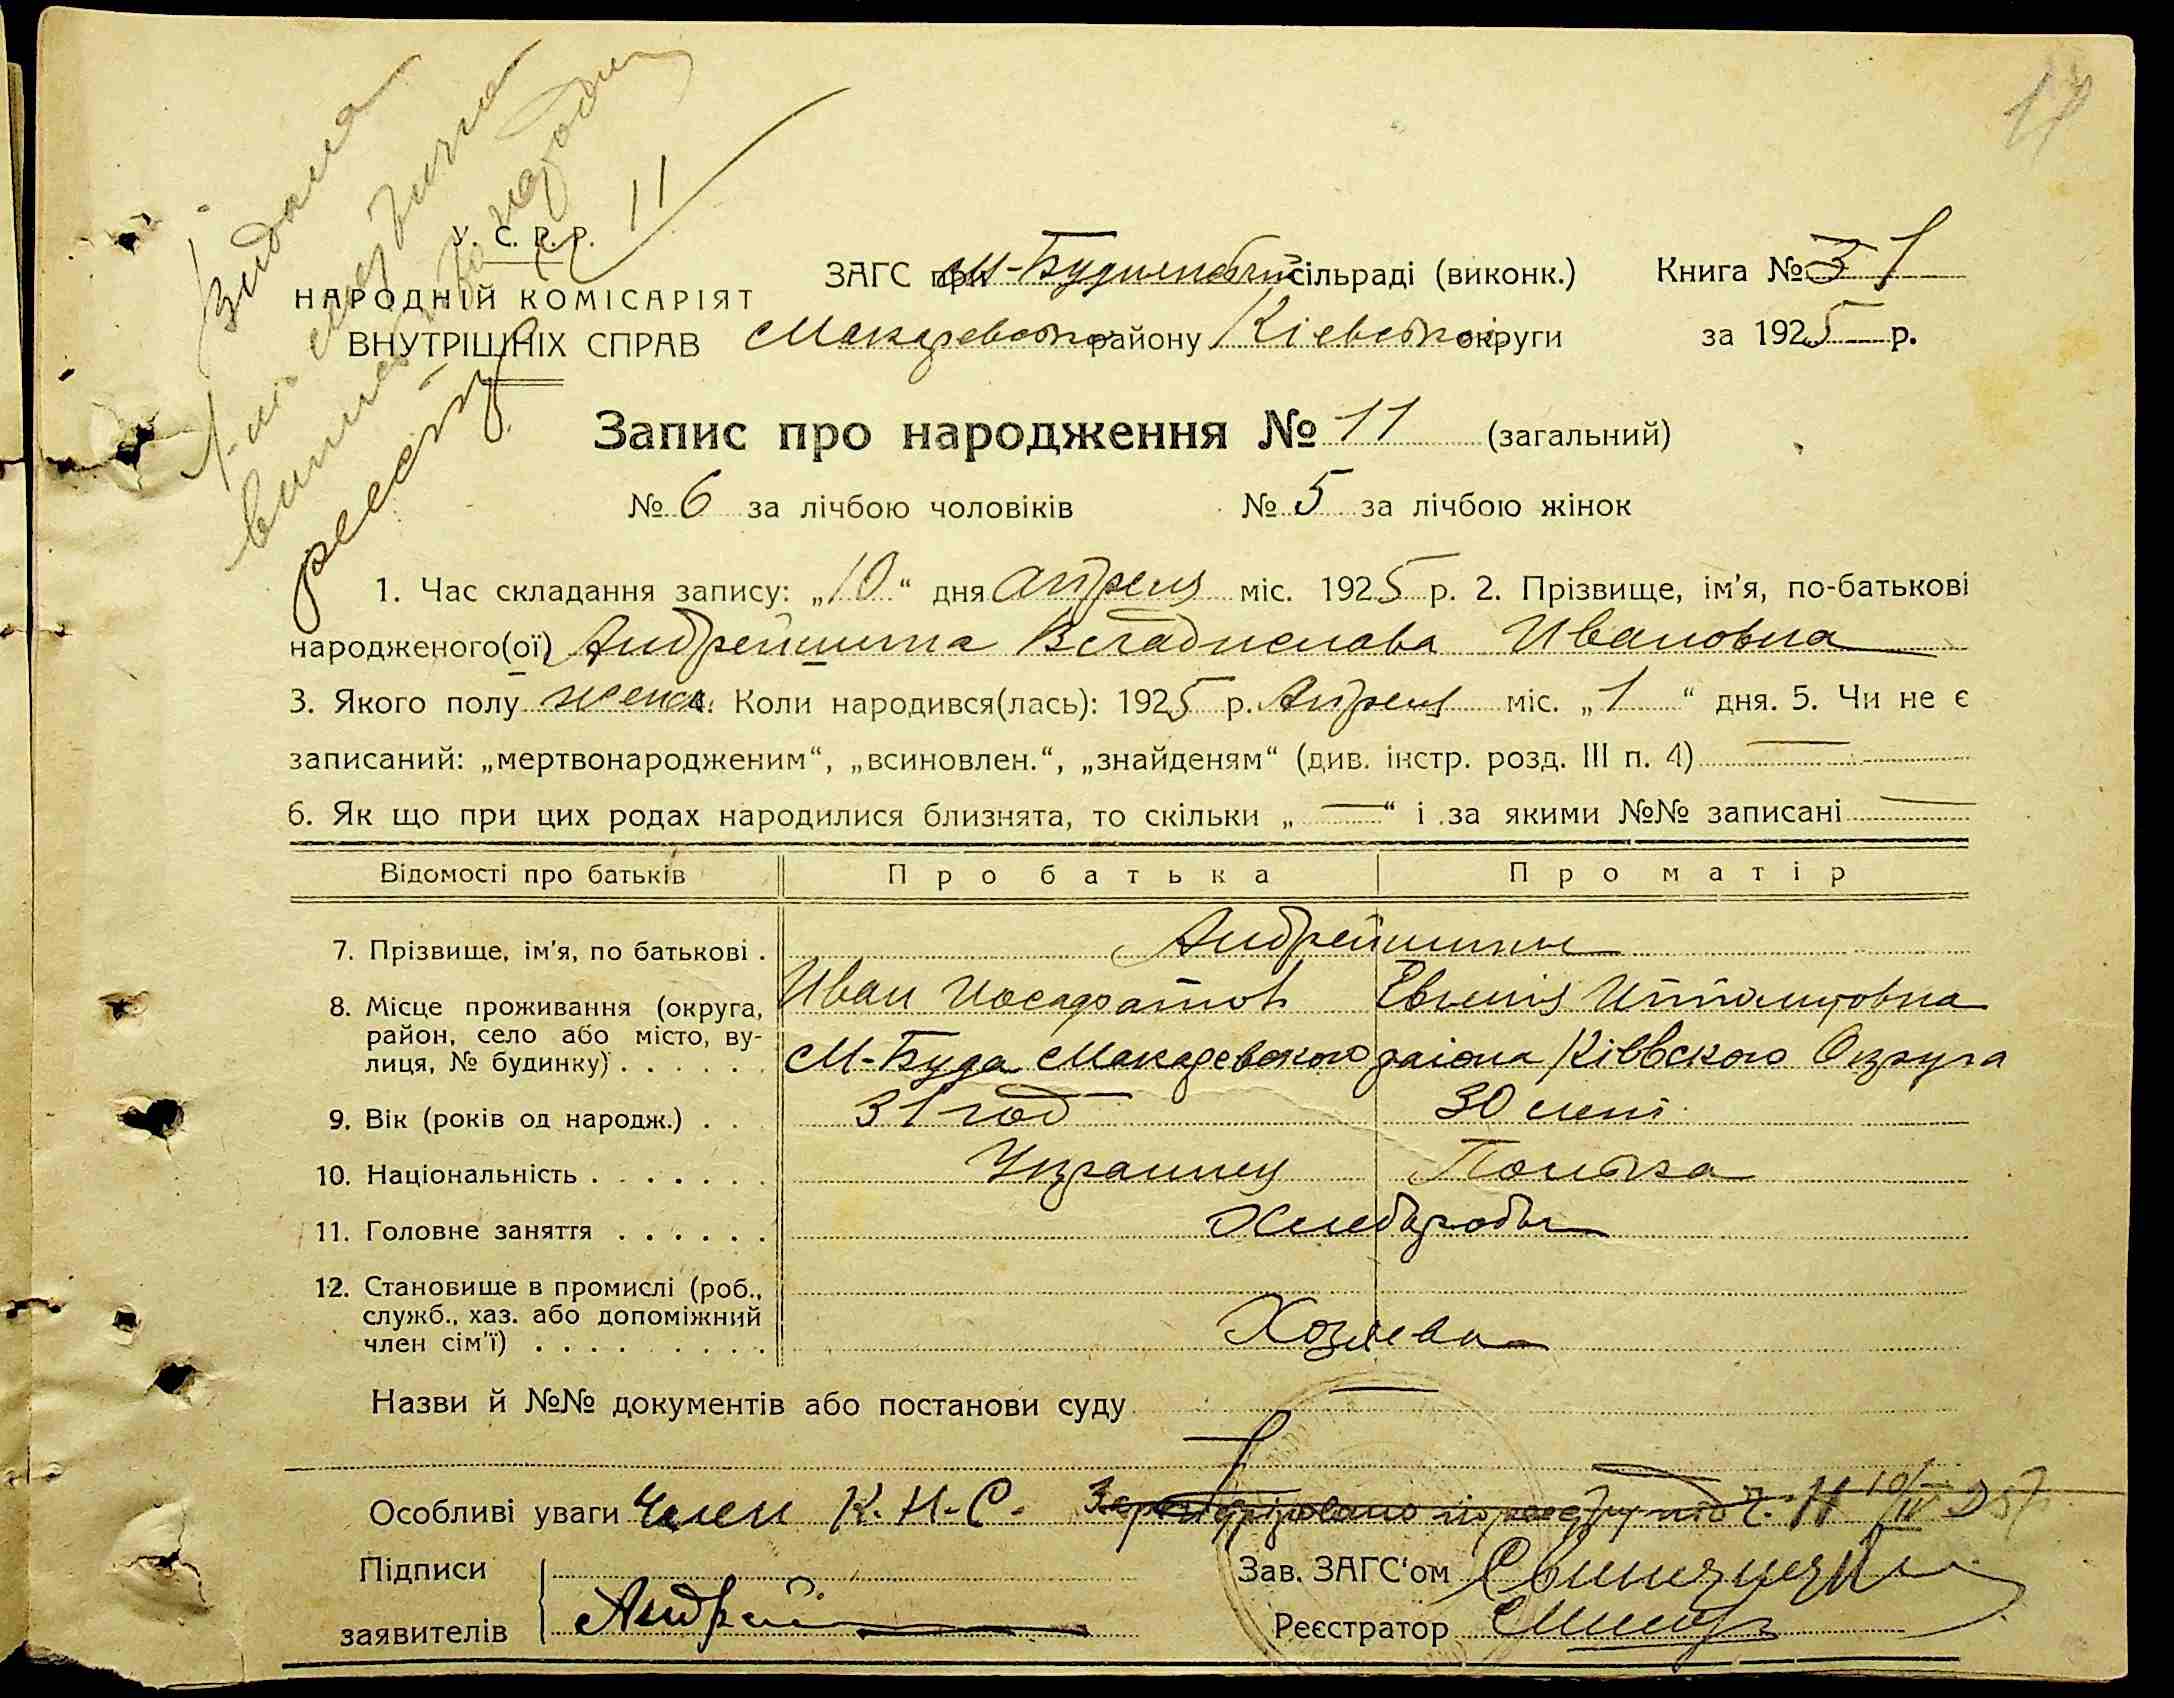 17
Видана
виписка про народж
реєстр 11
У. С. Р. Р.
НАРОДНІЙ КОМІСАРІЯТ
ВНУТРІШНІХ СПРАВ
ЗАГС при М-Будянской сільраді (виконк.)
Книга № 31
Макаревского району Кіевской округи
за 1925 р.
Запис про народження № 11 (загальний)
№ 6 за лічбою чоловіків № 5 за лічбою жінок
1. Час складання запису: „10“ дня Апреля міс. 1925 р. 2. Прізвище, ім'я, по-батькові
народженого(ої) Андрейшина Владислава Ивановна
3. Якого полу женск. 4. Коли народився(лась): 1925 р. Апреля міс. „1“ дня. 5. Чи не є
записаний: „мертвонародженим“, „всиновлен.“, „знайденям“ (див. інстр. розд. III п. 4) —
6. Як що при цих родах народилися близнята, то скільки „—“ і за якими №№ записані —
Відомості про батьків Про батька Про матір
7. Прізвище, ім'я, по батькові . Андрейшины
Иван Иосафатов Евгенія Ипполитовна
8. Місце проживання (округа,
район, село або місто, ву-
лиця, № будинку) . . . . . . М-Буда Макаревского раіона Кіевского Округа
9. Вік (років од народж.) . . . 31 год 30 лет
10. Національність . . . . . . . Украинец Полька
11. Головне заняття . . . . . . Хлеборобы
12. Становище в промислі (роб.,
служб., хаз. або допоміжний
член сім'ї) . . . . . . . . . Хозяева
Назви й №№ документів або постанови суду —
Особливі уваги Член К.Н.С. Зареєстровано по реєстру под Ч. 11 10/IV 25 р
Підписи
заявителів Андрей
Зав. ЗАГС'ом
Реєстратор